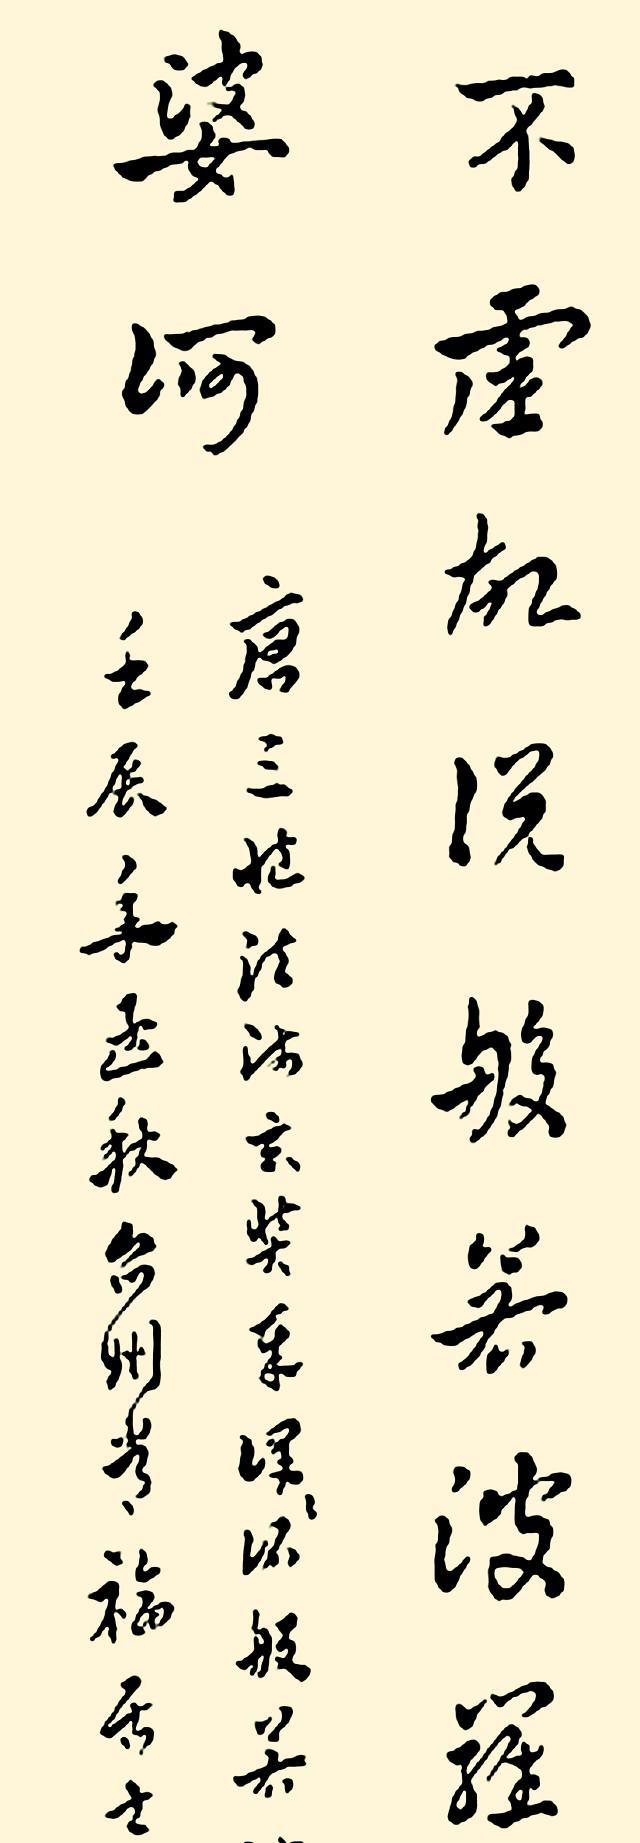 不虚故说般若波罗
娑诃
唐三藏法师玄奘奉译 般若
壬辰年孟秋台州 福居士